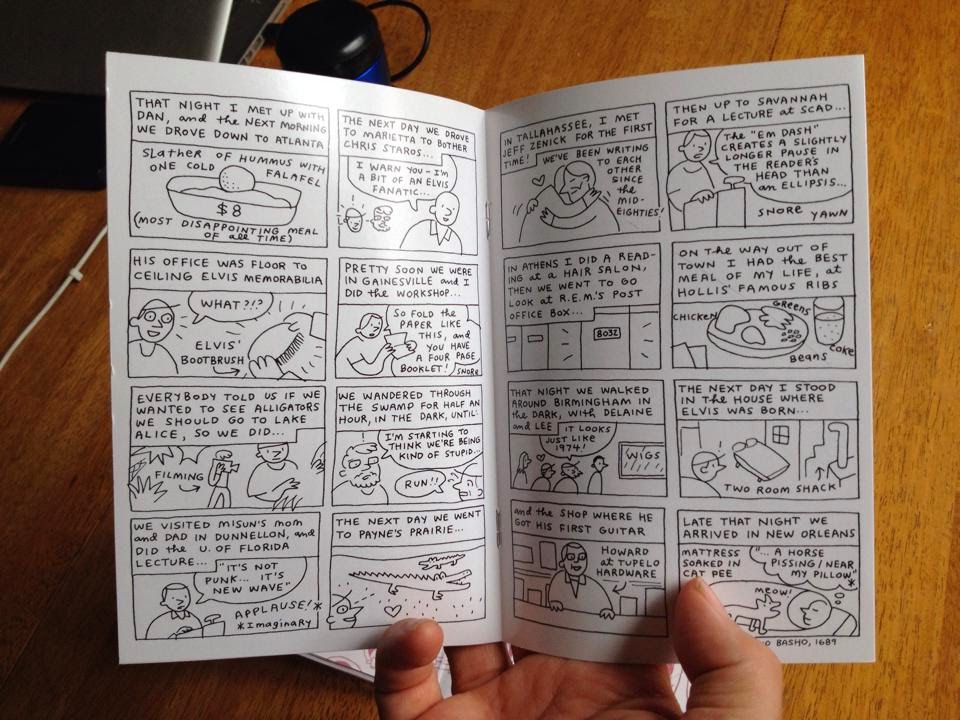 THAT NIGHT I MET UP WITH
DAN, and the NEXT MORNING
WE DROVE DOWN TO ATLANTA
SLATHER OF HUMMUS WITH
ONE COLD FALAFEL
$8
(MOST DISAPPOINTING MEAL
OF all TIME)
THE NEXT DAY WE DROVE
TO MARIETTA TO BOTHER
CHRIS STAROS...
I WARN YOU - I'M
A BIT OF AN ELVIS
FANATIC...
HIS OFFICE WAS FLOOR TO
CEILING ELVIS MEMORABILIA
WHAT?!?
ELVIS'
BOOTBRUSH
PRETTY SOON WE WERE
IN GAINESVILLE and I
DID the WORKSHOP...
SO FOLD the
PAPER LIKE
THIS, and
YOU HAVE
A FOUR PAGE
BOOKLET!
SNORE
EVERYBODY TOLD US IF WE
WANTED TO SEE ALLIGATORS
WE SHOULD GO TO LAKE
ALICE, SO WE DID...
FILMING
WE WANDERED THROUGH
THE SWAMP FOR HALF AN
HOUR, IN THE DARK, UNTIL:
I'M STARTING TO
THINK WE'RE BEING
KIND OF STUPID...
RUN!!
WE VISITED MISUN'S mom
and DAD IN DUNNELLON, and
DID the U. OF FLORIDA
LECTURE...
"IT'S NOT
PUNK... IT'S
NEW WAVE"
APPLAUSE!*
*ImaginaRy
THE NEXT DAY WE WENT
TO PAYNE'S PRAIRIE...
IN TALLAHASSEE, I MET
JEFF ZENICK FOR THE FIRST
TIME!
WE'VE BEEN WRITING
TO EACH
OTHER
SINCE
the
MID-
EIGHTIES!
THEN UP TO SAVANNAH
FOR A LECTURE at SCAD...
The "EM DASH"
CREATES A SLIGHTLY
LONGER PAUSE IN
THE READER'S
HEAD THAN
an ELLIPSIS...
SNORE YAWN
IN ATHENS I DID A READ-
ING at a HAIR SALON,
THEN WE WENT TO GO
LOOK at R.E.M.'S POST
OFFICE BOX...
8032
ON the WAY OUT OF
TOWN I HAD the BEST
MEAL OF MY LIFE, at
HOLLIS' FAMOUS RIBS
CHICKEN
GREENS
BEANS
COKE
THAT NIGHT WE WALKED
AROUND BIRMINGHAM in
the DARK, with DELAINE
and LEE
IT LOOKS
JUST LIKE
1974!
WIGS
THE NEXT DAY I STOOD
IN the HOUSE WHERE
ELVIS WAS BORN...
TWO ROOM SHACK!
and the SHOP WHERE HE
GOT HIS FIRST GUITAR
HOWARD
at TUPELO
HARDWARE
LATE THAT NIGHT WE
ARRIVED IN NEW ORLEANS
MATTRESS
SOAKED IN
CAT PEE
"... A HORSE
PISSING / NEAR
MY PILLOW"*
MEOW!
BASHO, 1689